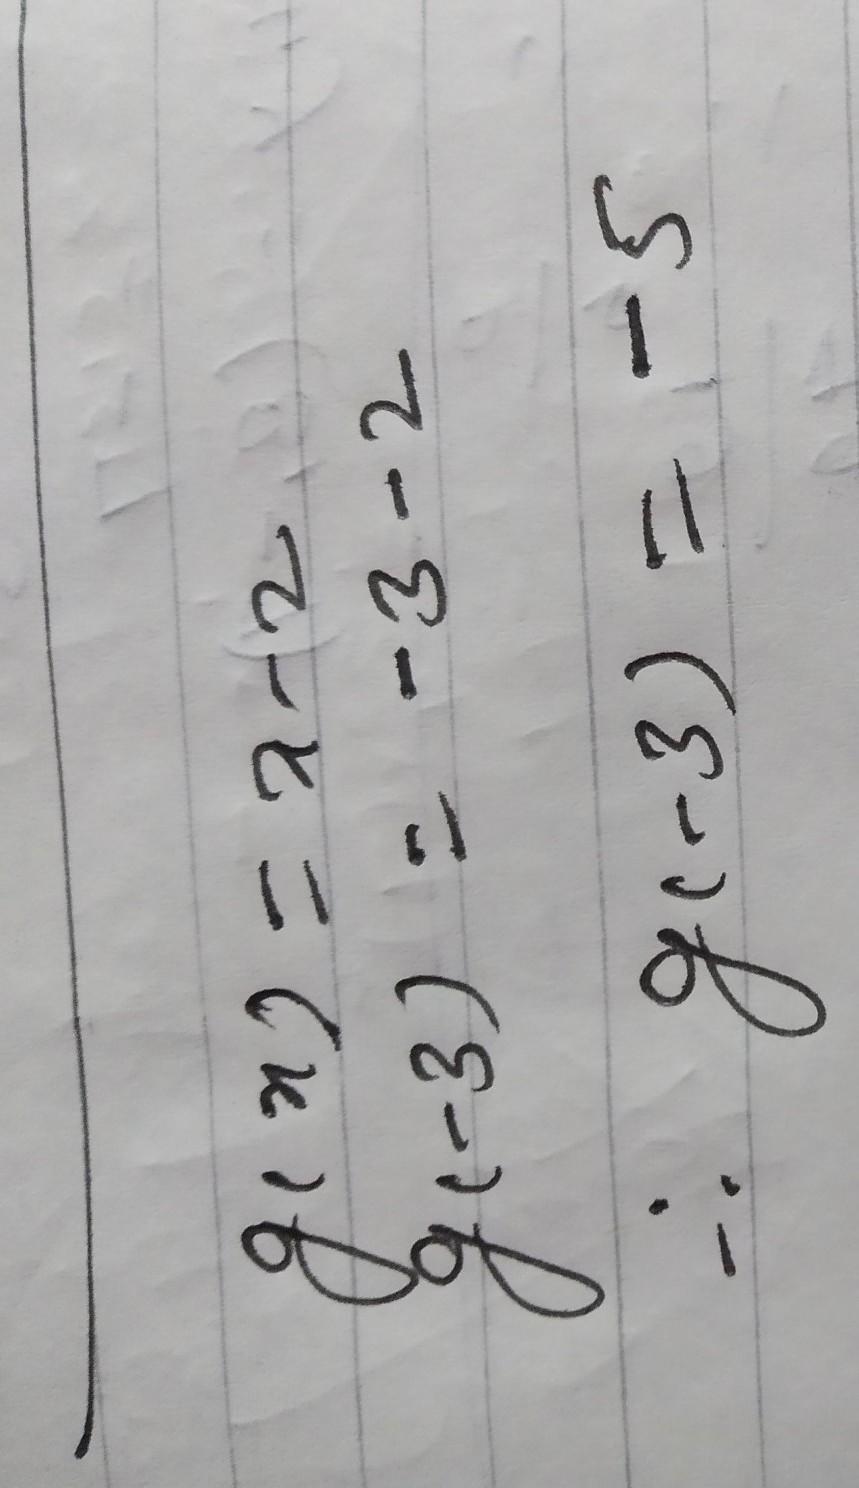 g(x) = x - 2
g(-3) = -3 - 2
∴ g(-3) = -5